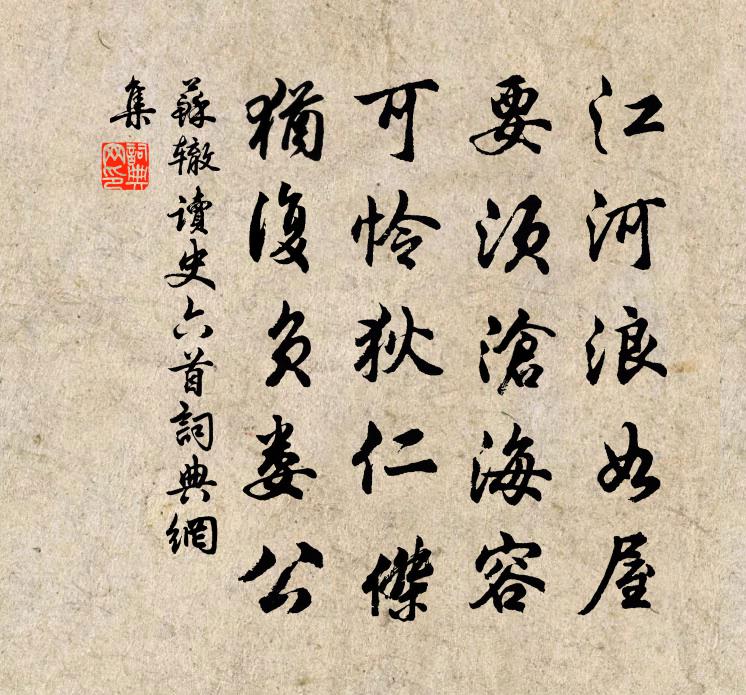 江河浪如屋
要須滄海容
可怜狄仁傑
猶復負婁公
蘇辙讀史六首詞典網
集
詞典
网印